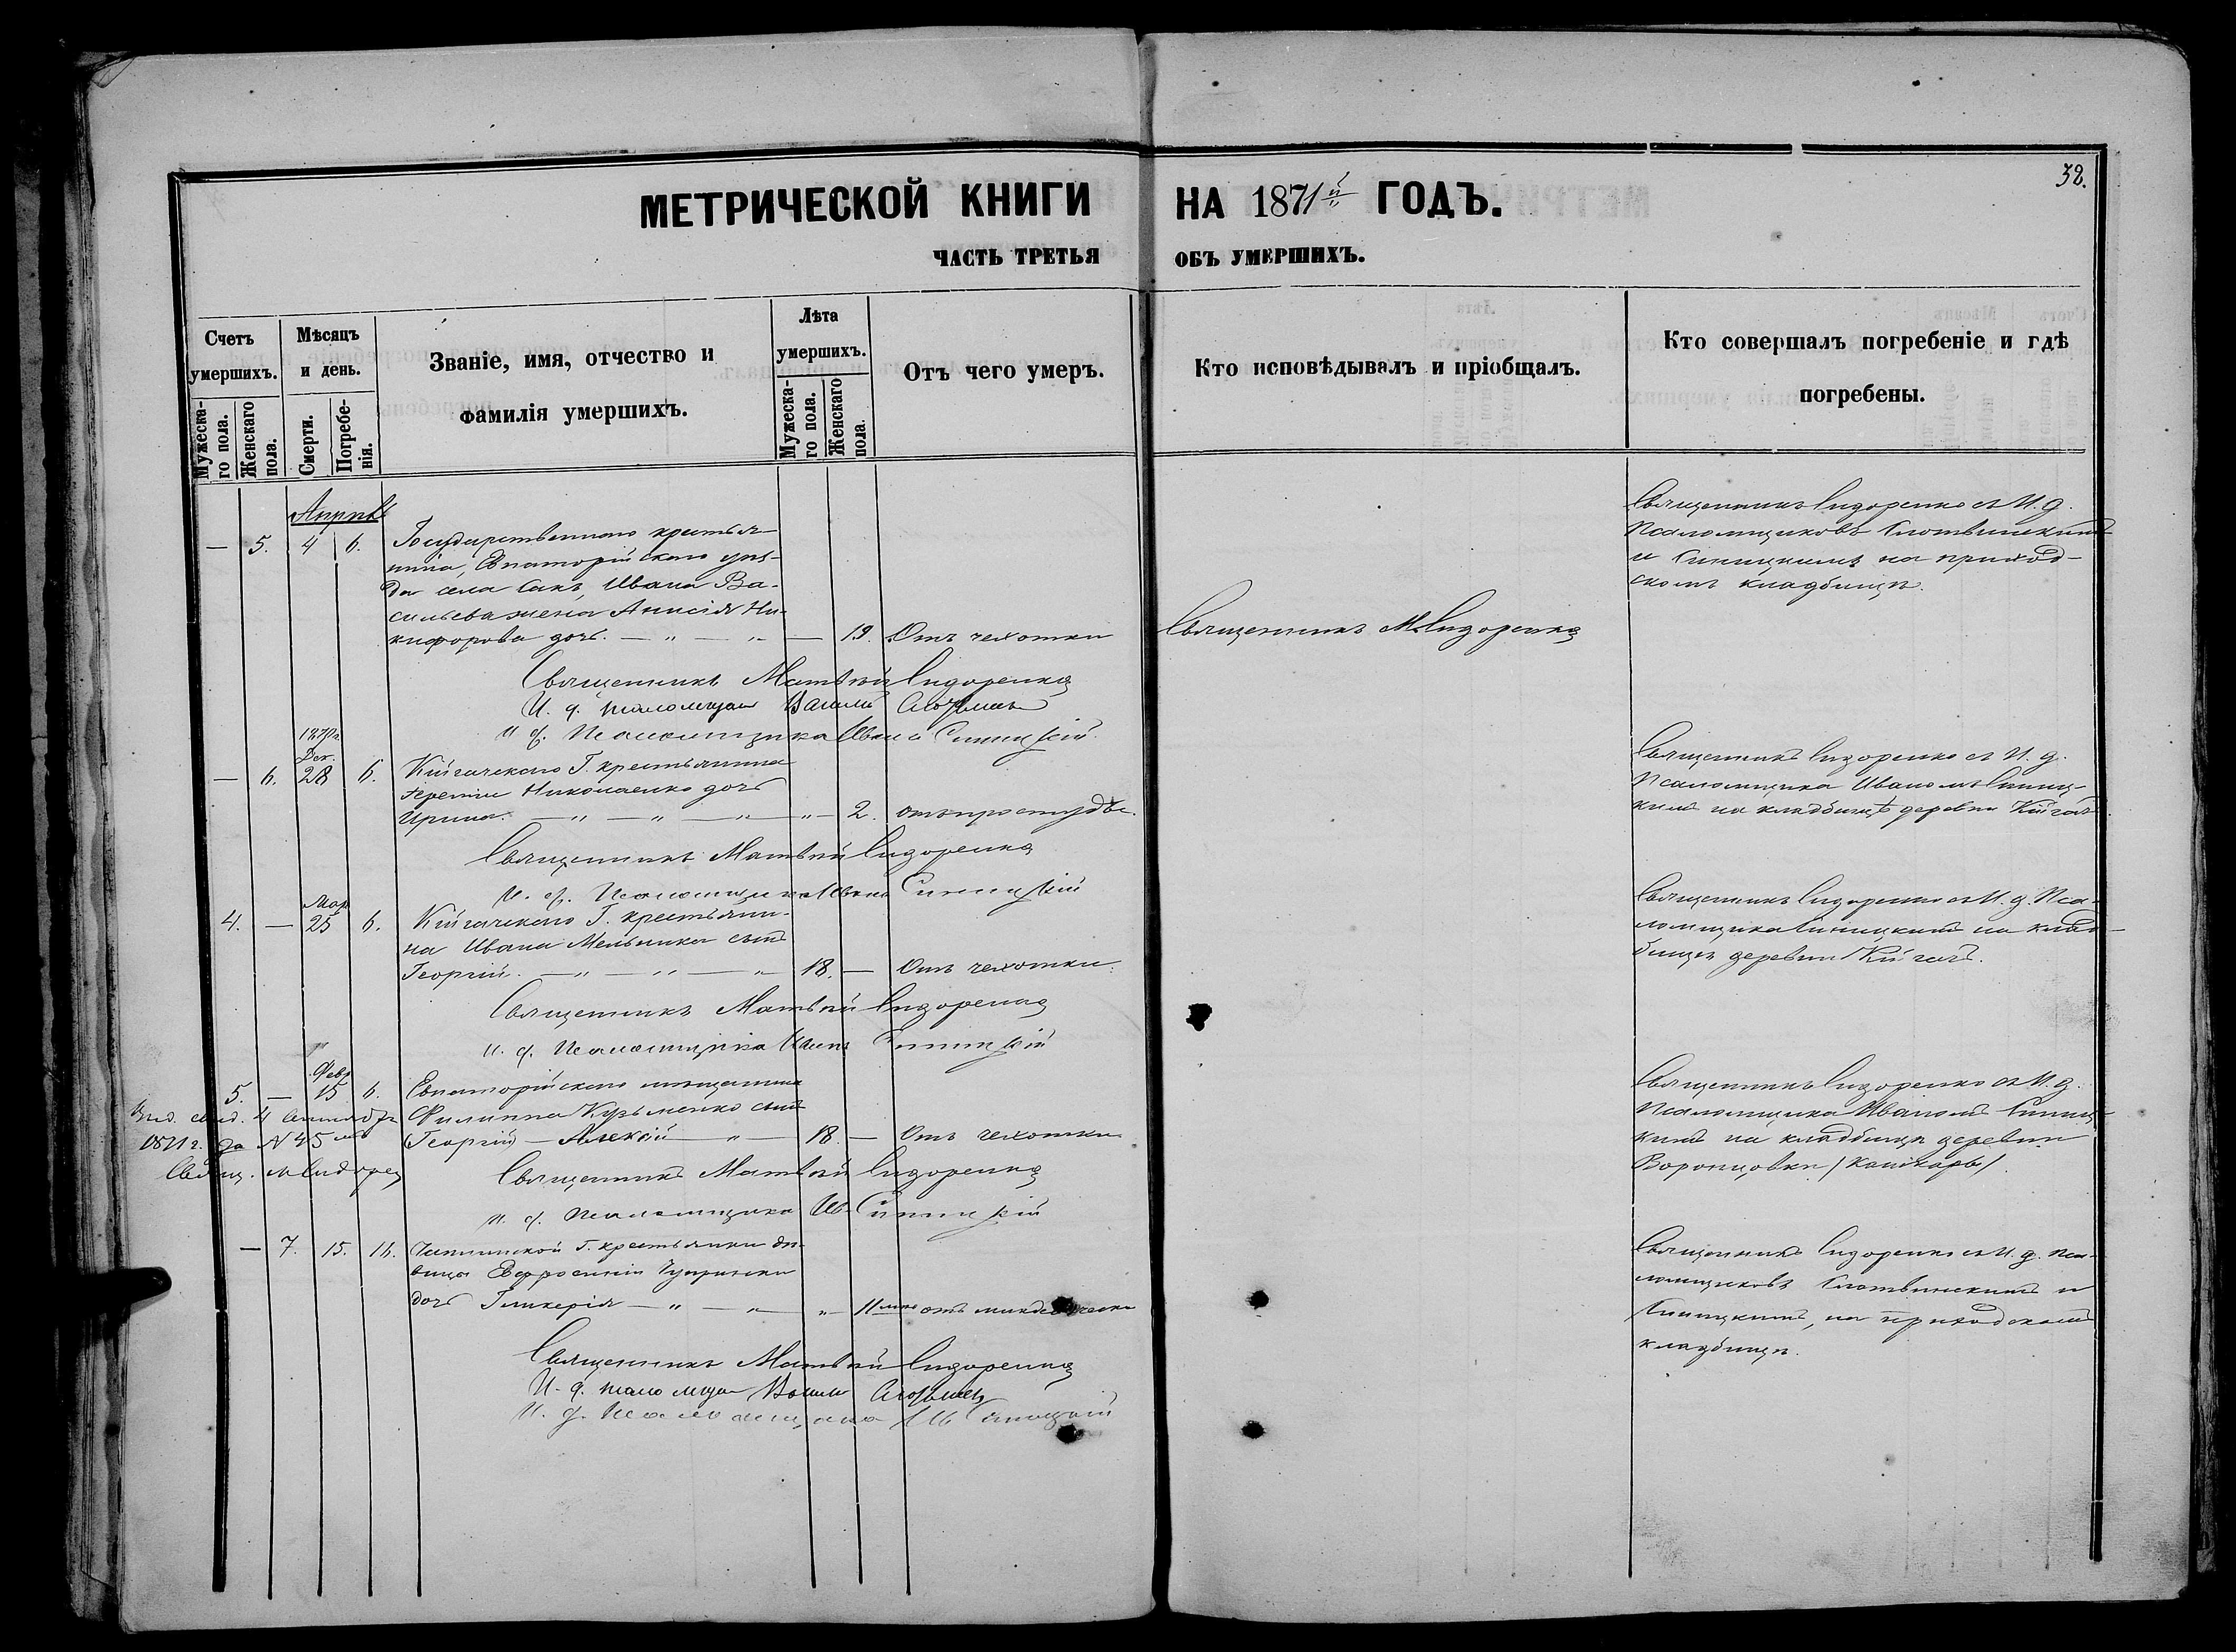 32.
МЕТРИЧЕСКОЙ КНИГИ НА 1871й ГОДЪ.
ЧАСТЬ ТРЕТЬЯ ОБЪ УМЕРШИХЪ.
Счетъ умершихъ.
Мужеска-
го пола.
Женскаго
пола.
Мѣсяцъ
и день.
Смерти.
Погребе-
нія.
Званіе, имя, отчество и
фамилія умершихъ.
Лѣта
умершихъ.
Мужеска-
го пола.
Женскаго
пола.
Отъ чего умеръ.
Кто исповѣдывалъ и пріобщалъ.
Кто совершалъ погребеніе и гдѣ
погребены.
Апрѣль
— 5. 4 6. Государственнаго крестья-
нина, Евпаторійскаго уѣз-
да села Сакъ, Ивана Ва-
сильева жена Анисія Ни-
кифорова дочь. — „ — „ — 19. Отъ чехотки
Священникъ М. Сидоренко
Священникъ Сидоренко съ И. д.
Псаломщиковъ Слотвинскимъ
и Синицкимъ на приход-
скомъ кладбищѣ.
Священникъ Матвѣй Сидоренко
И. д. псаломщика
И. д. Псаломщика Иванъ Синицкій.
1870 г.
Дек.
— 6. 28 6. Кійгачскаго Г. крестьянина
Николаенко дочь
Ирина. — „ — „ — „ — „ — 2. отъ простуды.
Священникъ Сидоренко съ И. д.
Псаломщика Иваномъ Синиц-
кимъ на кладбищѣ деревни Кійгачъ
Священникъ Матвѣй Сидоренко
И. д. Псаломщика Иванъ Синицкій
Мар.
4. — 25 6. Кійгачскаго Г. крестьяни-
на Ивана Мельника сынъ
Георгій. — „ — „ — „ 18. — Отъ чехотки.
Священникъ Сидоренко съ И. д. Пса-
ломщика Синицкимъ на клад-
бищѣ деревни Кійгачъ.
Священникъ Матвѣй Сидоренко
И. д. Псаломщика Иванъ Синицкій
Февр.
5. — 15 6. Евпаторійскаго мѣщанина
Филиппа Кузьменко сынъ
Георгій — Алексій — „ — 18. — Отъ чехотки
Выд. свид. 4 Сентября
1871 г. за № 45мъ
Свящ. М Сидоренко
Священникъ Сидоренко съ И. д.
Псаломщика Иваномъ Синиц-
кимъ на кладбищѣ деревни
Воронцовки /
Священникъ Матвѣй Сидоренко
И. д. Псаломщика Ив. Синицкій
— 7. 15. 16. Г. крестьянки дѣ-
вицы Евфросиніи
дочь Гликерія — „ — „ — „ — 11 отъ
Священникъ Сидоренко съ И. д. пса-
ломщиковъ Слотвинскимъ и
Синицкимъ, на приходскомъ
кладбищѣ.
Священникъ Матвѣй Сидоренко
И. д. псаломщика
И. д. Псаломщика Ив Синицкій